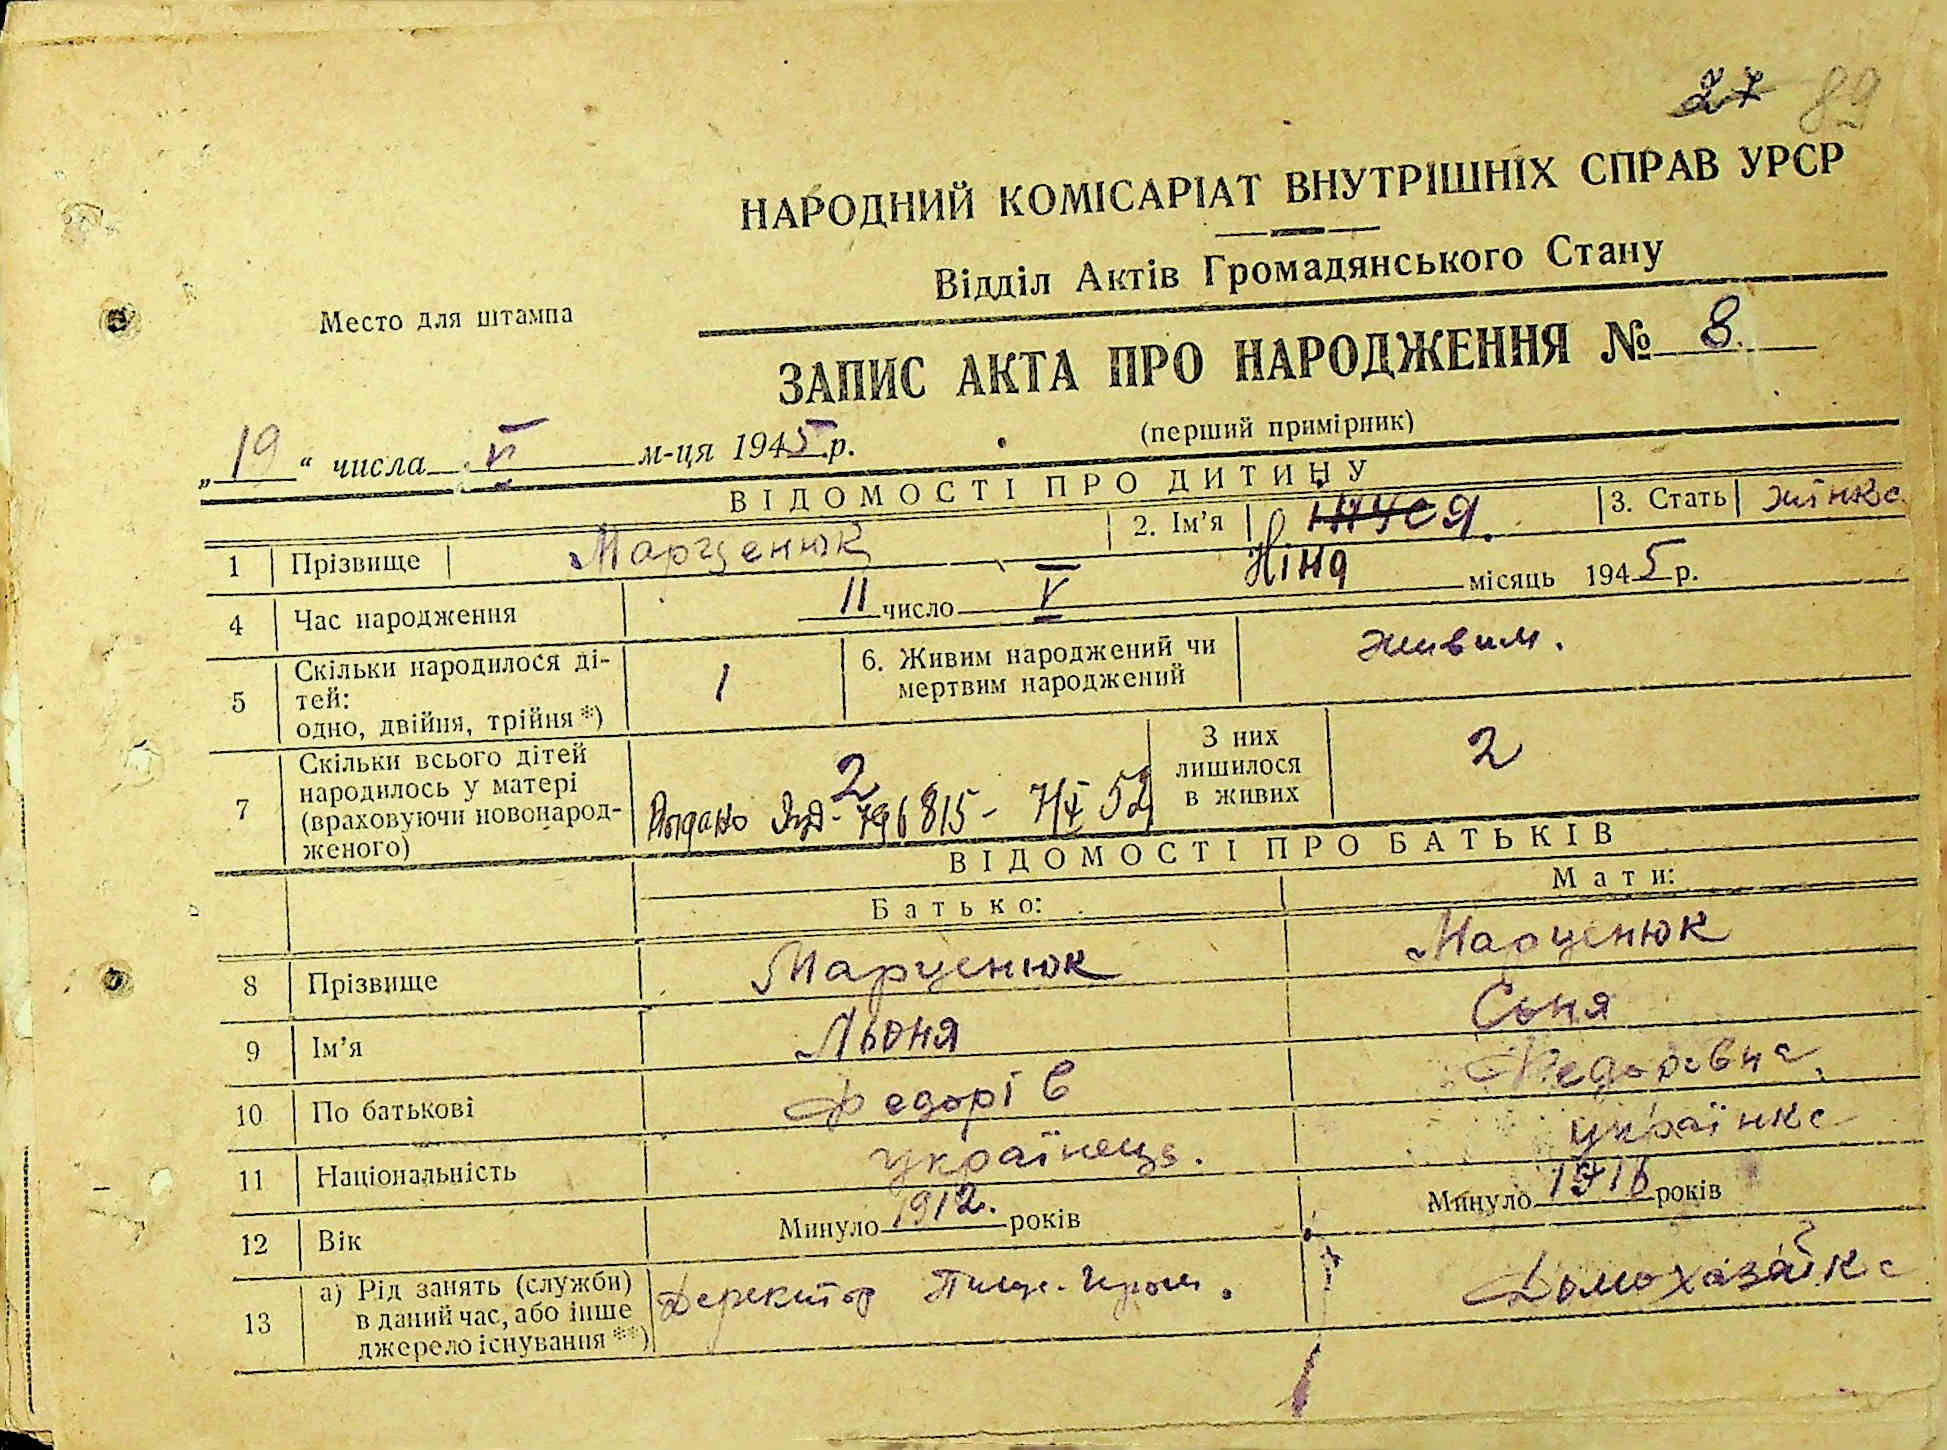 27 89
НАРОДНИЙ КОМІСАРІАТ ВНУТРІШНІХ СПРАВ УРСР
Відділ Актів Громадянського Стану
Место для штампа
ЗАПИС АКТА ПРО НАРОДЖЕННЯ № 8.
(перший примірник)
„ 19 “ числа VI м-ця 1945 р.
ВІДОМОСТІ ПРО ДИТИНУ
1 Прізвище Марценюк 2. Ім’я Ніна 3. Стать жінка
4 Час народження 11 число V місяць 1945 р.
5 Скільки народилося ді-
тей:
одно, двійня, трійня *) 1 6. Живим народжений чи
мертвим народжений живим.
7 Скільки всього дітей
народилось у матері
(враховуючи новонарод-
женого) 2 З них
лишилося
в живих 2
796815
ВІДОМОСТІ ПРО БАТЬКІВ
Батько: Мати:
8 Прізвище Марценюк Марценюк
9 Ім’я Льоня Соня
10 По батькові Федорів Федоровна
11 Національність українець. українка
12 Вік Минуло 1912. років Минуло 1916 років
13 а) Рід занять (служби)
в даний час, або інше
джерело існування **) Деректор Домохазайка